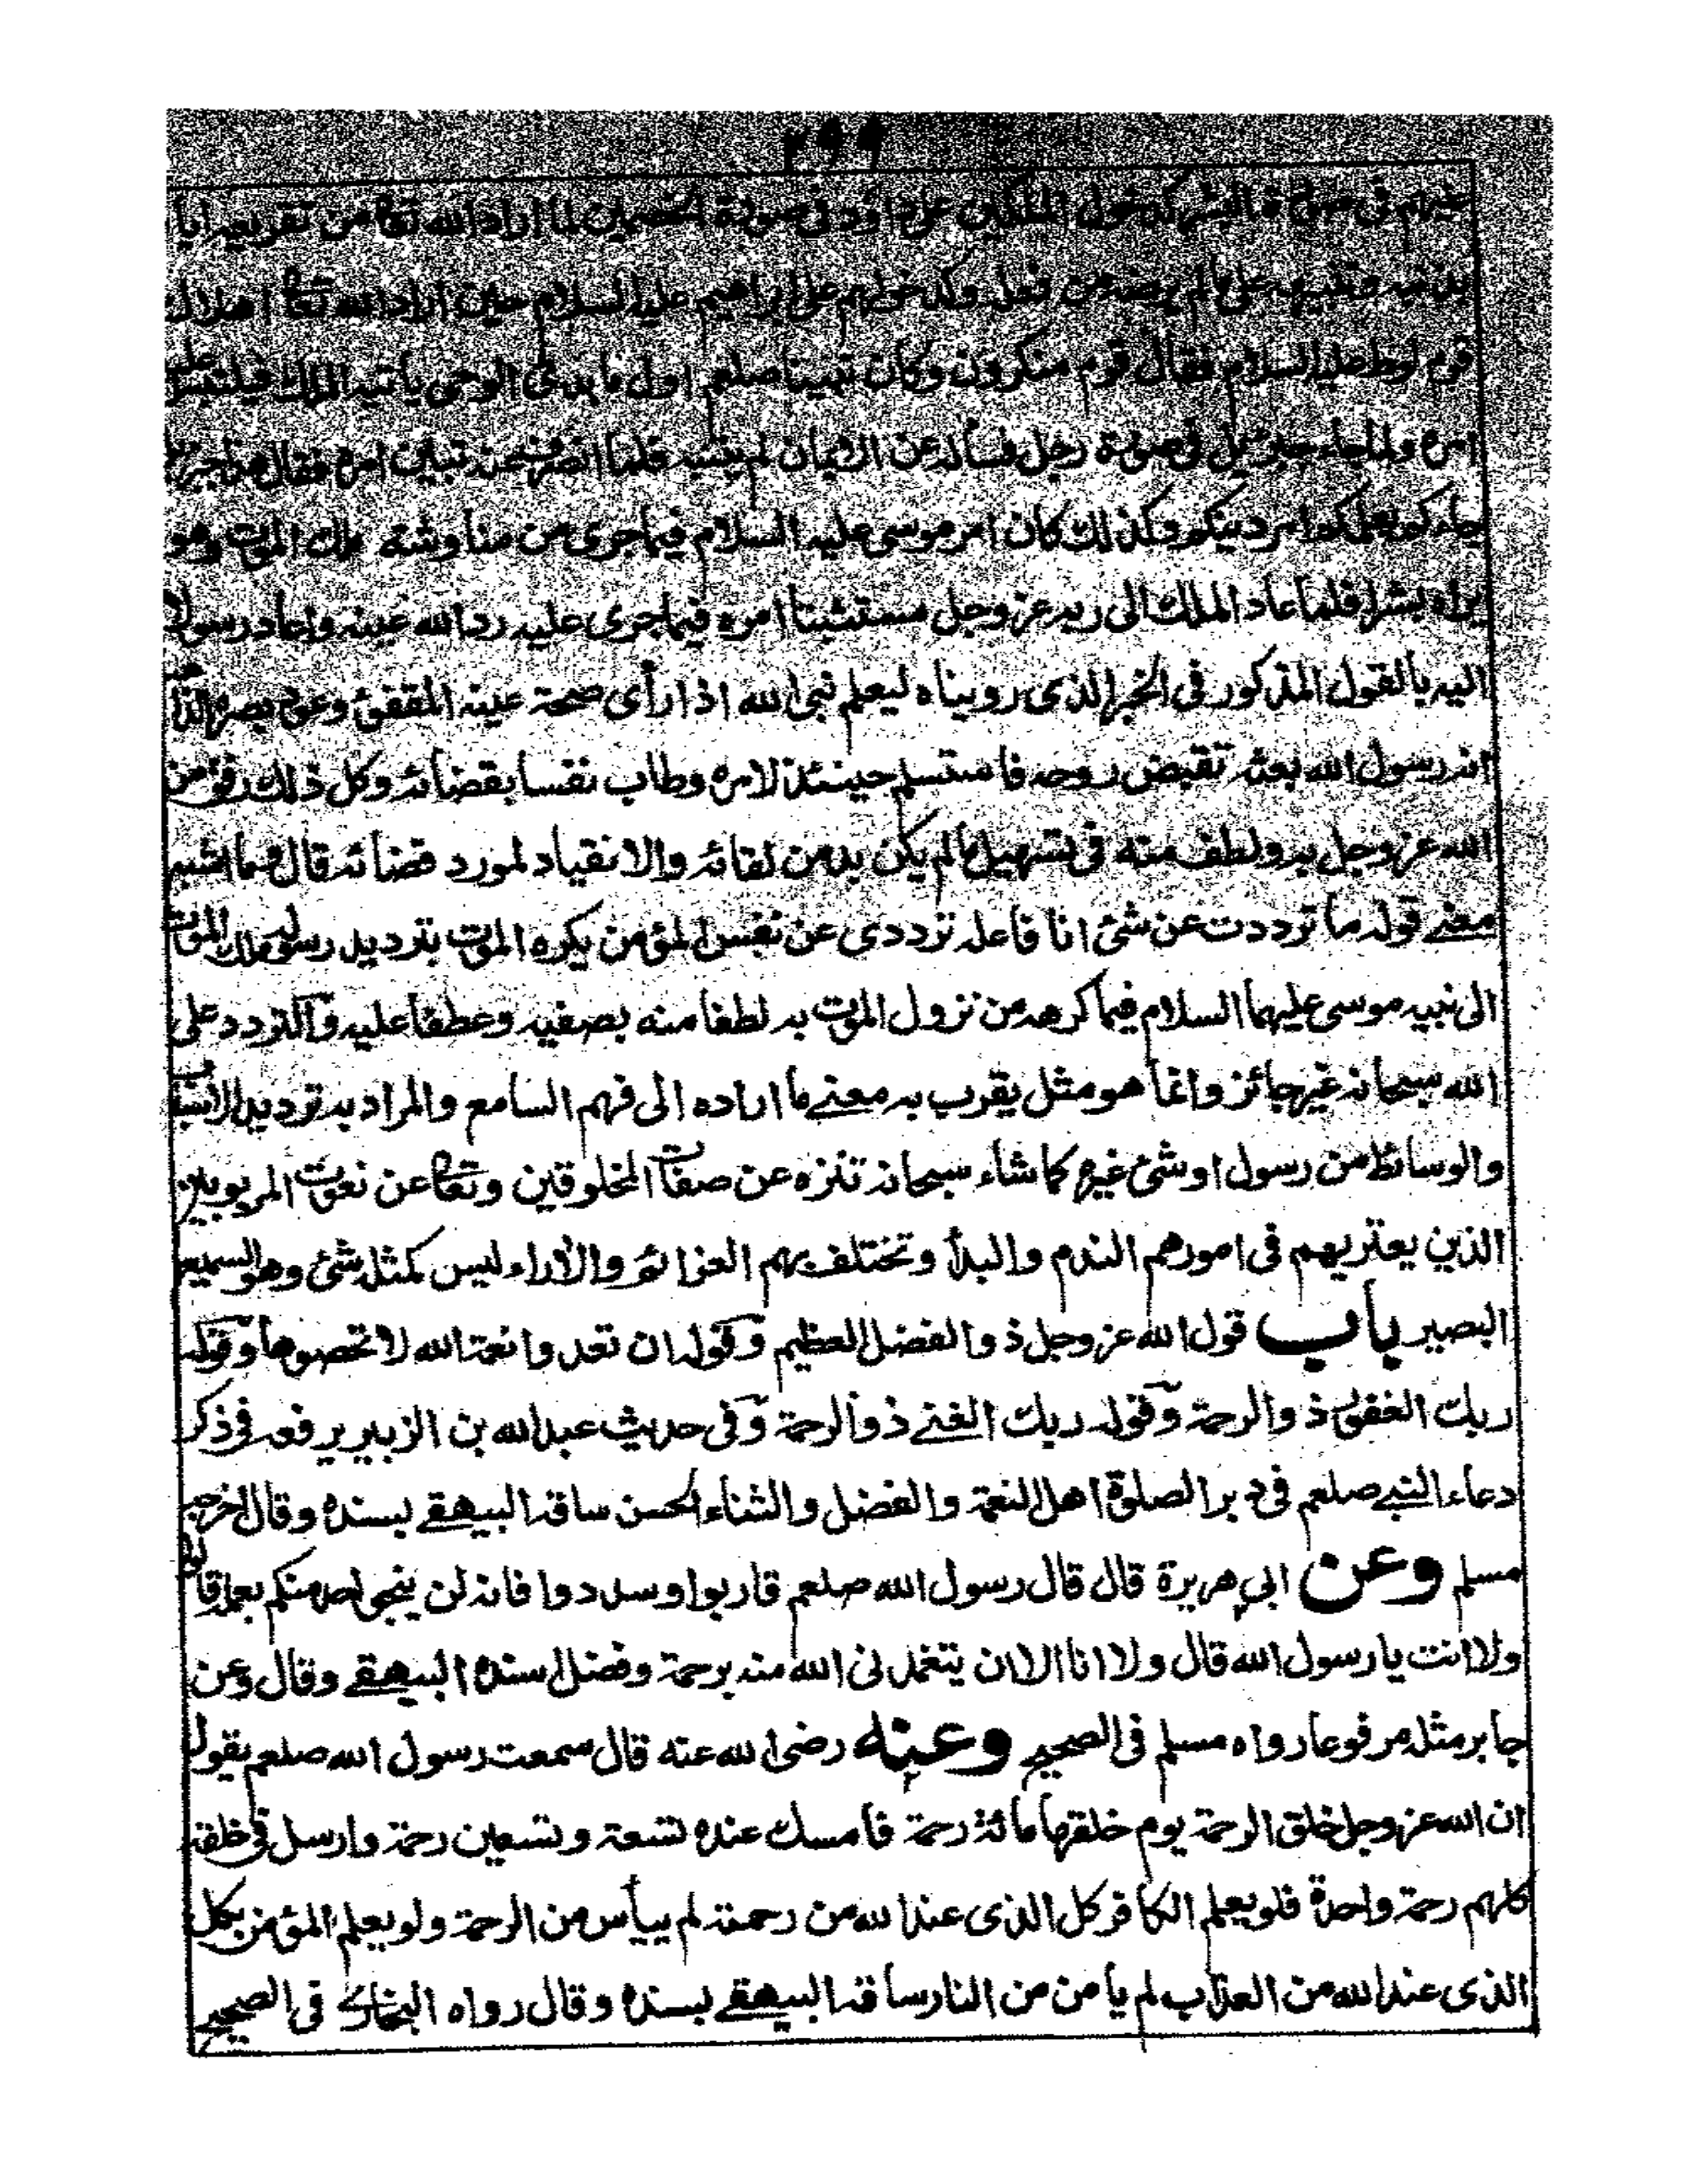 ٢٩٩
غيرهم فى صورة البشر كدخول الملكين على داؤد فى صورة الخصمين لما اراد الله تعا من تقريعه ايا
بذنبه وتنبيهه على ما لم يرضه من فعله وكدخولهم على ابراهيم عليه السلام حين اراد الله تعا اهلاك
قوم لوط عليه السلام فقال قوم منكرون وكان نبينا صلعم اول ما بدئ الوحى يأتيه الملك فيلتبس عليه
امره ولما جاءه جبرئيل فى صورة رجل فسأله عن الايمان لم يثبته فلما انصرف عنه تبين امره فقال هذا جبرئيل
جاءكم يعلمكم امر دينكم وكذلك كان امر موسى عليه السلام فيما جرى من مناوشته ملك الموت وهو
يراه بشرا فلما عاد الملك الى ربه عز وجل مستثبتا امره فيما جرى عليه رد الله عينه واعاد رسولا
اليه بالقول المذكور فى الخبر الذى رويناه ليعلم نبى الله اذا رأى صحة عينه المفقئ وعود بصره الذاهب
انه رسول الله بعثه تقبض روحه فاستسلم حينئذ لامره وطاب نفسا بقضائه وكل ذلك رفق من
الله عز وجل به ولطف منه فى تسهيل ما لم يكن بد من لقائه والانقياد لمورد قضائه قال وما اشبه
معنے قوله ما ترددت عن شئ انا فاعله ترددى عن نفس المؤمن يكره الموت بترديد رسوله ملك الموت
الى نبيه موسى عليهما السلام فيما كرهه من نزول الموت به لطفا منه بصفيه وعطفا عليه والتردد على
الله سبحانه غير جائز وانما هو مثل يقرب به معنے ما اراده الى فهم السامع والمراد به ترديد الاسباب
والوسائط من رسول او شئ غيره كما شاء سبحانه تنزه عن صفات المخلوقين وتعا عن نعوت المربوبين
الذين يعتريهم فى امورهم الندم والبدأ وتختلف بهم العزائم والاراء ليس كمثله شئ وهو السميع
البصير باب قول الله عز وجل ذو الفضل العظيم وقوله ان تعدوا نعة الله لا تحصوها وقوله
ربك الغفور ذو الرحمة وقوله ربك الغنے ذو الرحمة وفى حديث عبد الله بن الزبير يرفعه فى ذكر
دعاء النبے صلعم فى دبر الصلوة اهل النعمة والفضل والثناء الحسن ساقه البيهقے بسنده وقال اخرجه
مسلم وعن ابى هريرة قال قال رسول الله صلعم قاربوا وسددوا فانه لن ينجى احد منكم بعمله قالوا
ولا انت يا رسول الله قال ولا انا الا ان يتغمدنى الله منه برحمة وفضل اسنده البيهقے وقال وعن
جابر مثله مرفوعا رواه مسلم فى الصحيح وعنه رضى الله عنه قال سمعت رسول الله صلعم يقول
ان الله عز وجل خلق الرحمة يوم خلقها مائة رحمة فأمسك عنده تسعة وتسعين رحمة وارسل فى خلقه
كلهم رحمة واحدة فلو يعلم الكافر كل الذى عند الله من رحمته لم ييأس من الرحمة ولو يعلم المؤمن بكل
الذى عند الله من العذاب لم يأمن من النار ساقه البيهقے بسنده وقال رواه البخارى فى الصحيح